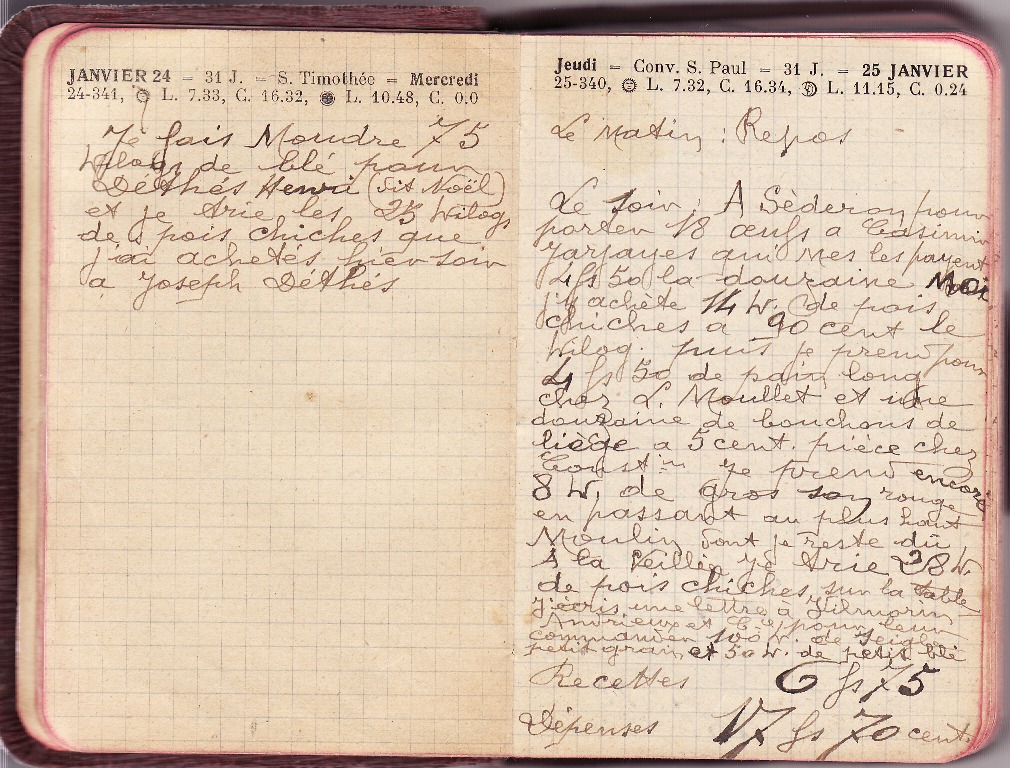 JANVIER 24 = 31 J. = S. Timothée = Mercredi
24-341, L. 7.33, C. 16.32, L. 10.48, C. 0.0
Je fais Moudre 75
kilogs de blé pour
Déthès Henri (dit Noël)
et je trie les 25 kilogs
de pois chiches que
j'ai achetés hier soir
a Joseph Déthès
Jeudi = Conv. S. Paul = 31 J. = 25 JANVIER
25-340, L. 7.32, C. 16.34, L. 11.15, C. 0.24
Le matin : Repos
Le soir, A Séderon pour
porter 18 œufs a Casimir
Jarjayes qui mes les payent
4 fs 50 la douzaine Moi
j'y achète 14 k. de pois
chiches a 90 cent le
kilog. puis je prend pour
4 fs 50 de pain long
chez L. Moullet et une
douzaine de bouchons de
liège a 5 cent. pièce chez
Const.in Je prend encore
8 k. de gros son rouge
en passant au plus haut
Moulin dont je reste dû
A la veillée je trie 28 k.
de pois chiches sur la table
J'écris une lettre à Vilmorin
Andrieux et Cie pour leur
commander 100 k. de seigle
petit grain et 50 k. de petit blé
Recettes 6 fs 75
Dépenses 17 fs 70 cent.